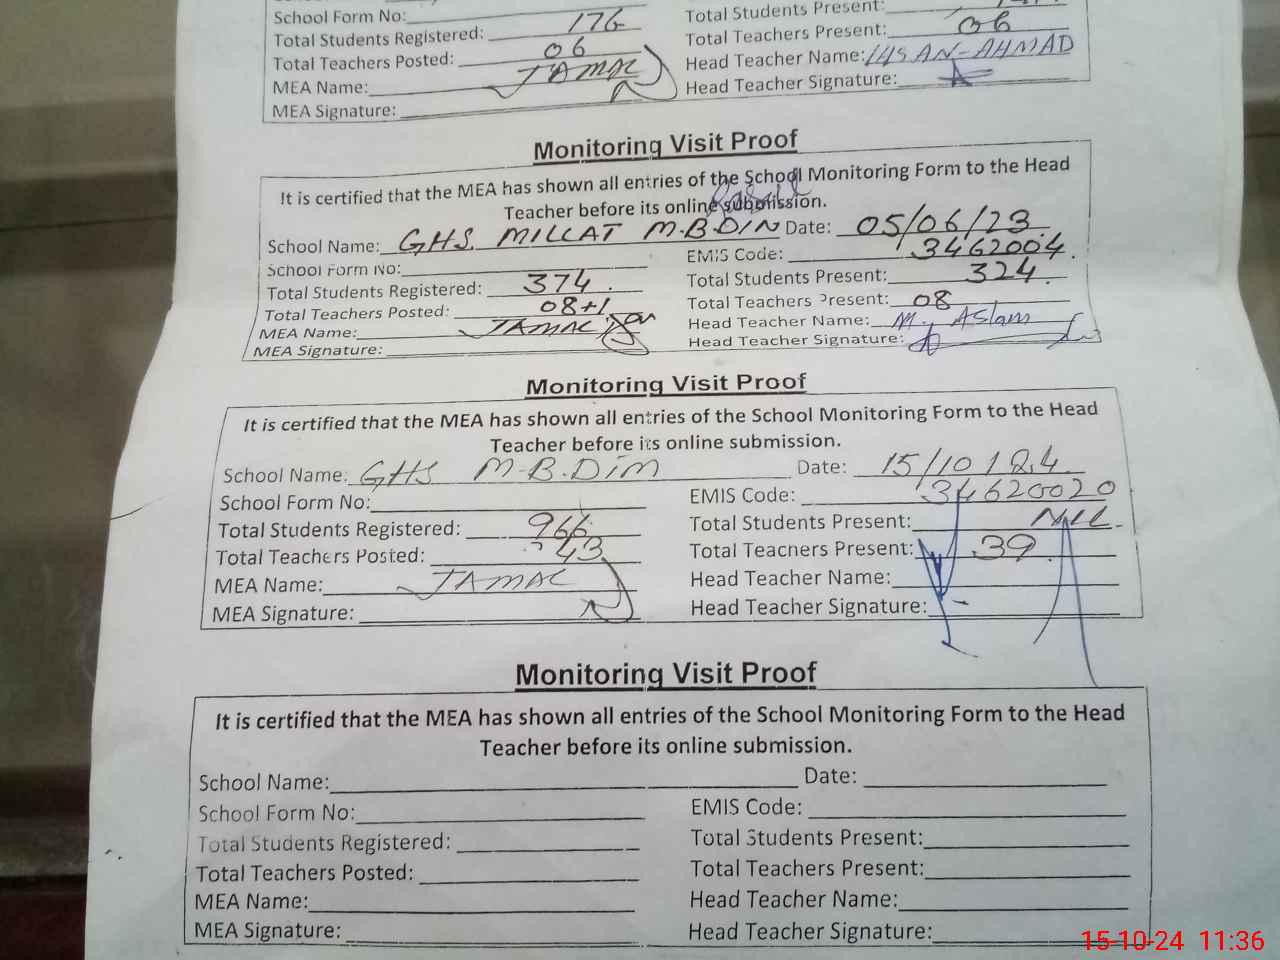 School Form No:
Total Students Registered: 176
Total Teachers Posted: 06
MEA Name: JAMAL
MEA Signature:
Total Students Present:
Total Teachers Present: 06
Head Teacher Name: IHSAN-AHMAD
Head Teacher Signature:
Monitoring Visit Proof
It is certified that the MEA has shown all entries of the School Monitoring Form to the Head
Teacher before its online submission.
School Name: GHS. MILLAT M.B.DIN Date: 05/06/23
School Form No: EMIS Code: 3462004
Total Students Registered: 374 Total Students Present: 324
Total Teachers Posted: 08+1 Total Teachers Present: 08
MEA Name: JAMAL Head Teacher Name: M. Aslam
MEA Signature: Head Teacher Signature:
Monitoring Visit Proof
It is certified that the MEA has shown all entries of the School Monitoring Form to the Head
Teacher before its online submission.
School Name: GHS M.B.DIM Date: 15/10/24
School Form No: EMIS Code: 34620020
Total Students Registered: 966 Total Students Present: NIL
Total Teachers Posted: 43 Total Teachers Present: 39
MEA Name: JAMAL Head Teacher Name:
MEA Signature: Head Teacher Signature:
Monitoring Visit Proof
It is certified that the MEA has shown all entries of the School Monitoring Form to the Head
Teacher before its online submission.
School Name: Date:
School Form No: EMIS Code:
Total Students Registered: Total Students Present:
Total Teachers Posted: Total Teachers Present:
MEA Name: Head Teacher Name:
MEA Signature: Head Teacher Signature:
15-10-24 11:36